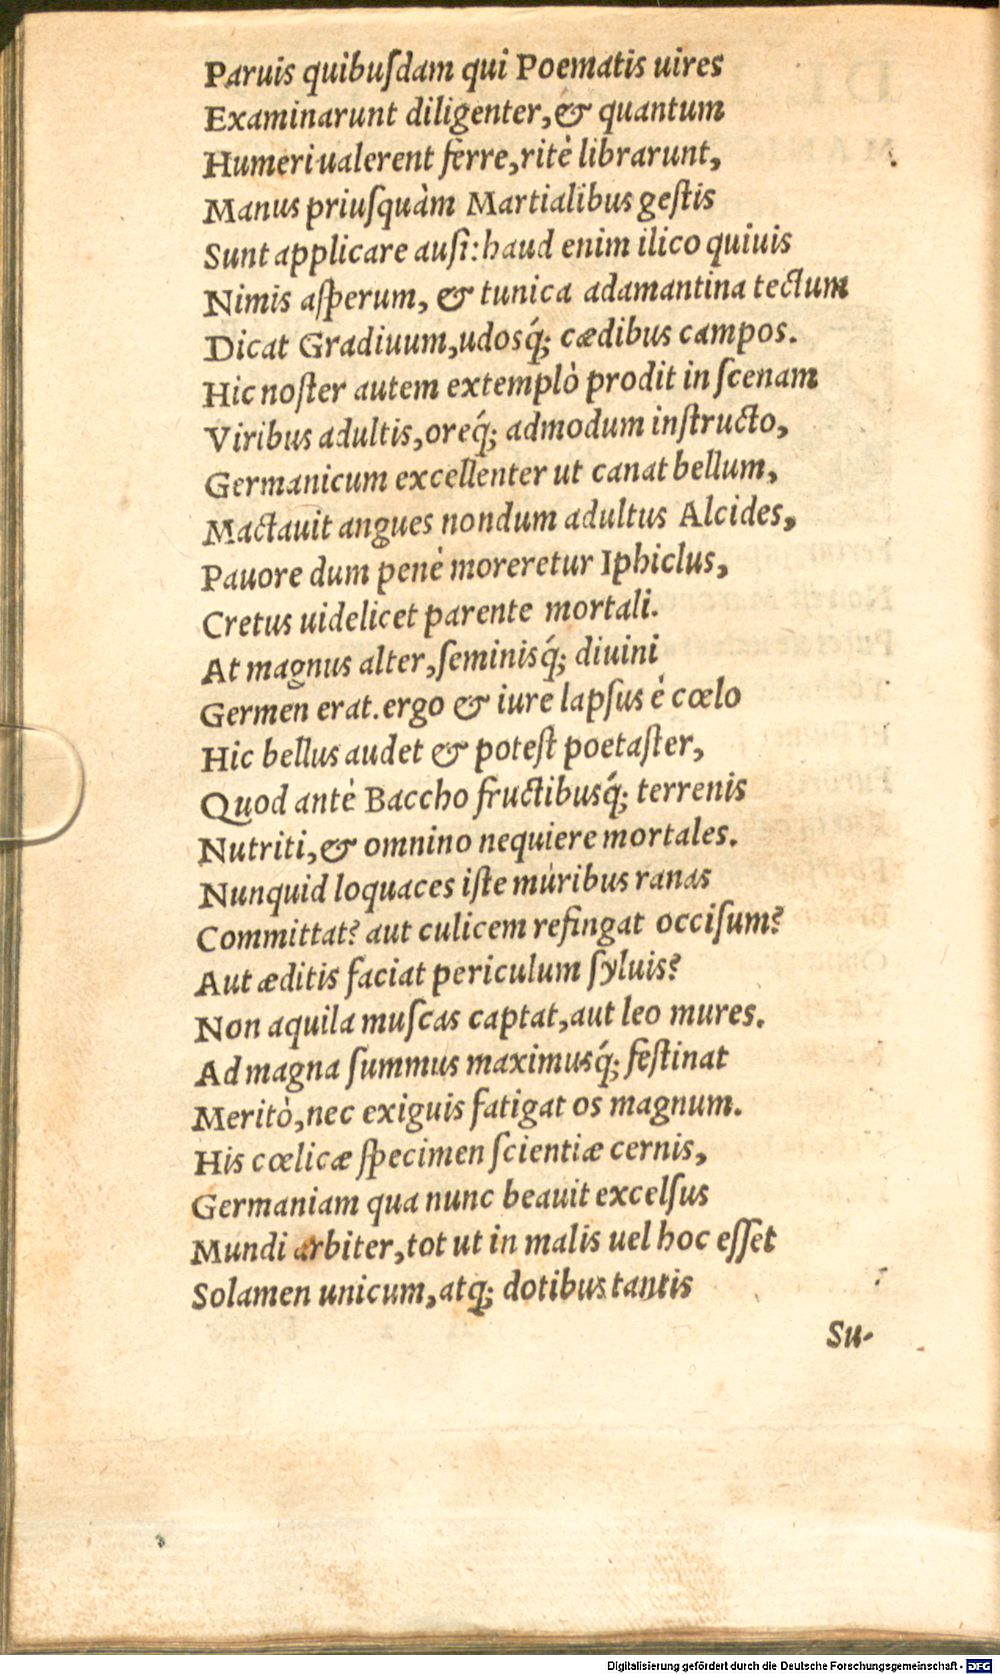 Paruis quibuſdam qui Poematis uires
Examinarunt diligenter, & quantum
Humeri ualerent ferre, ritè librarunt,
Manus priuſquàm Martialibus geſtis
Sunt applicare auſi: haud enim ilico quiuis
Nimis aſperum, & tunica adamantina tectum
Dicat Gradiuum, udosq́; cædibus campos.
Hic noſter autem extemplò prodit in ſcenam
Viribus adultis, oreq́; admodum inſtructo,
Germanicum excellenter ut canat bellum,
Mactauit angues nondum adultus Alcides,
Pauore dum penè moreretur Iphiclus,
Cretus uidelicet parente mortali.
At magnus alter, ſeminisq́; diuini
Germen erat. ergo & iure lapſus è cœlo
Hic bellus audet & poteſt poetaſter,
Quod antè Baccho fructibusq́; terrenis
Nutriti, & omnino nequiere mortales.
Nunquid loquaces iſte muribus ranas
Committat? aut culicem refingat occiſum?
Aut æditis faciat periculum ſyluis?
Non aquila muſcas captat, aut leo mures.
Ad magna ſummus maximusq́; feſtinat
Meritò, nec exiguis fatigat os magnum.
His cœlicæ ſpecimen ſcientiæ cernis,
Germaniam qua nunc beauit excelſus
Mundi arbiter, tot ut in malis uel hoc eſſet
Solamen unicum, atq; dotibus tantis
Su-
Digitalisierung gefördert durch die Deutsche Forschungsgemeinschaft - DFG